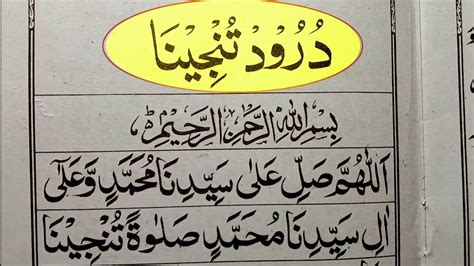 دُرُوْد تُنْجِيْنَا
بِسْمِ اللهِ الرَّحْمٰنِ الرَّحِيْمِ
اَللّٰهُمَّ صَلِّ عَلٰى سَيِّدِنَا مُحَمَّدٍ وَّعَلٰٓى
اٰلِ سَيِّدِنَا مُحَمَّدٍ صَلٰوةً تُنْجِيْنَا